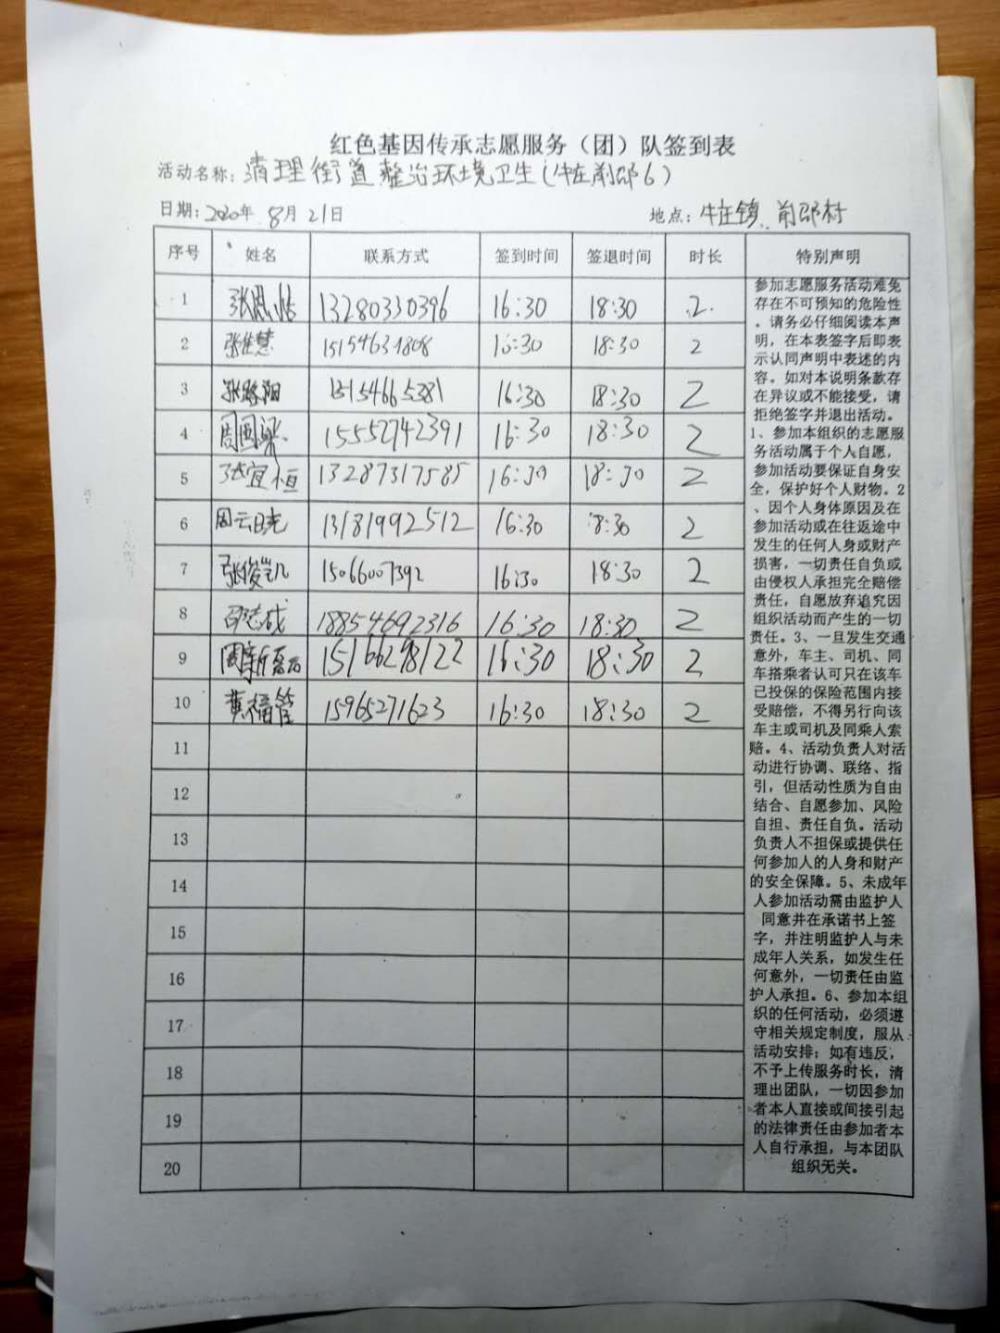 红色基因传承志愿服务（团）队签到表
活动名称：清理街道整治环境卫生（牛庄前邵6）
日期：2020年 8月 21日 地点：牛庄镇 前邵村
序号 姓名 联系方式 签到时间 签退时间 时长 特别声明
1 13280330396 16:30 18:30 2
2 张佳慧 15154631808 16:30 18:30 2
3 张路阳 15154665381 16:30 18:30 2
4 周国梁 15552742391 16:30 18:30 2
5 张宜恒 13287317585 16:30 18:30 2
6 周云晓 13181992512 16:30 8:30 2
7 张俊凯 15066007392 16:30 18:30 2
8 邵志成 18854692316 16:30 18:30 2
9 周新磊 15166298122 16:30 18:30 2
10 黄福管 15965271623 16:30 18:30 2
11
12
13
14
15
16
17
18
19
20
参加志愿服务活动难免
存在不可预知的危险性
。请务必仔细阅读本声
明，在本表签字后即表
示认同声明中表述的内
容。如对本说明条款存
在异议或不能接受，请
拒绝签字并退出活动。
1、参加本组织的志愿服
务活动属于个人自愿，
参加活动要保证自身安
全，保护好个人财物。2
、因个人身体原因及在
参加活动或在往返途中
发生的任何人身或财产
损害，一切责任自负或
由侵权人承担完全赔偿
责任，自愿放弃追究因
组织活动而产生的一切
责任。3、一旦发生交通
意外，车主、司机、同
车搭乘者认可只在该车
已投保的保险范围内接
受赔偿，不得另行向该
车主或司机及同乘人索
赔。4、活动负责人对活
动进行协调、联络、指
引，但活动性质为自由
结合、自愿参加、风险
自担、责任自负。活动
负责人不担保或提供任
何参加人的人身和财产
的安全保障。5、未成年
人参加活动需由监护人
同意并在承诺书上签
字，并注明监护人与未
成年人关系，如发生任
何意外，一切责任由监
护人承担。6、参加本组
织的任何活动，必须遵
守相关规定制度，服从
活动安排；如有违反，
不予上传服务时长，清
理出团队，一切因参加
者本人直接或间接引起
的法律责任由参加者本
人自行承担，与本团队
组织无关。